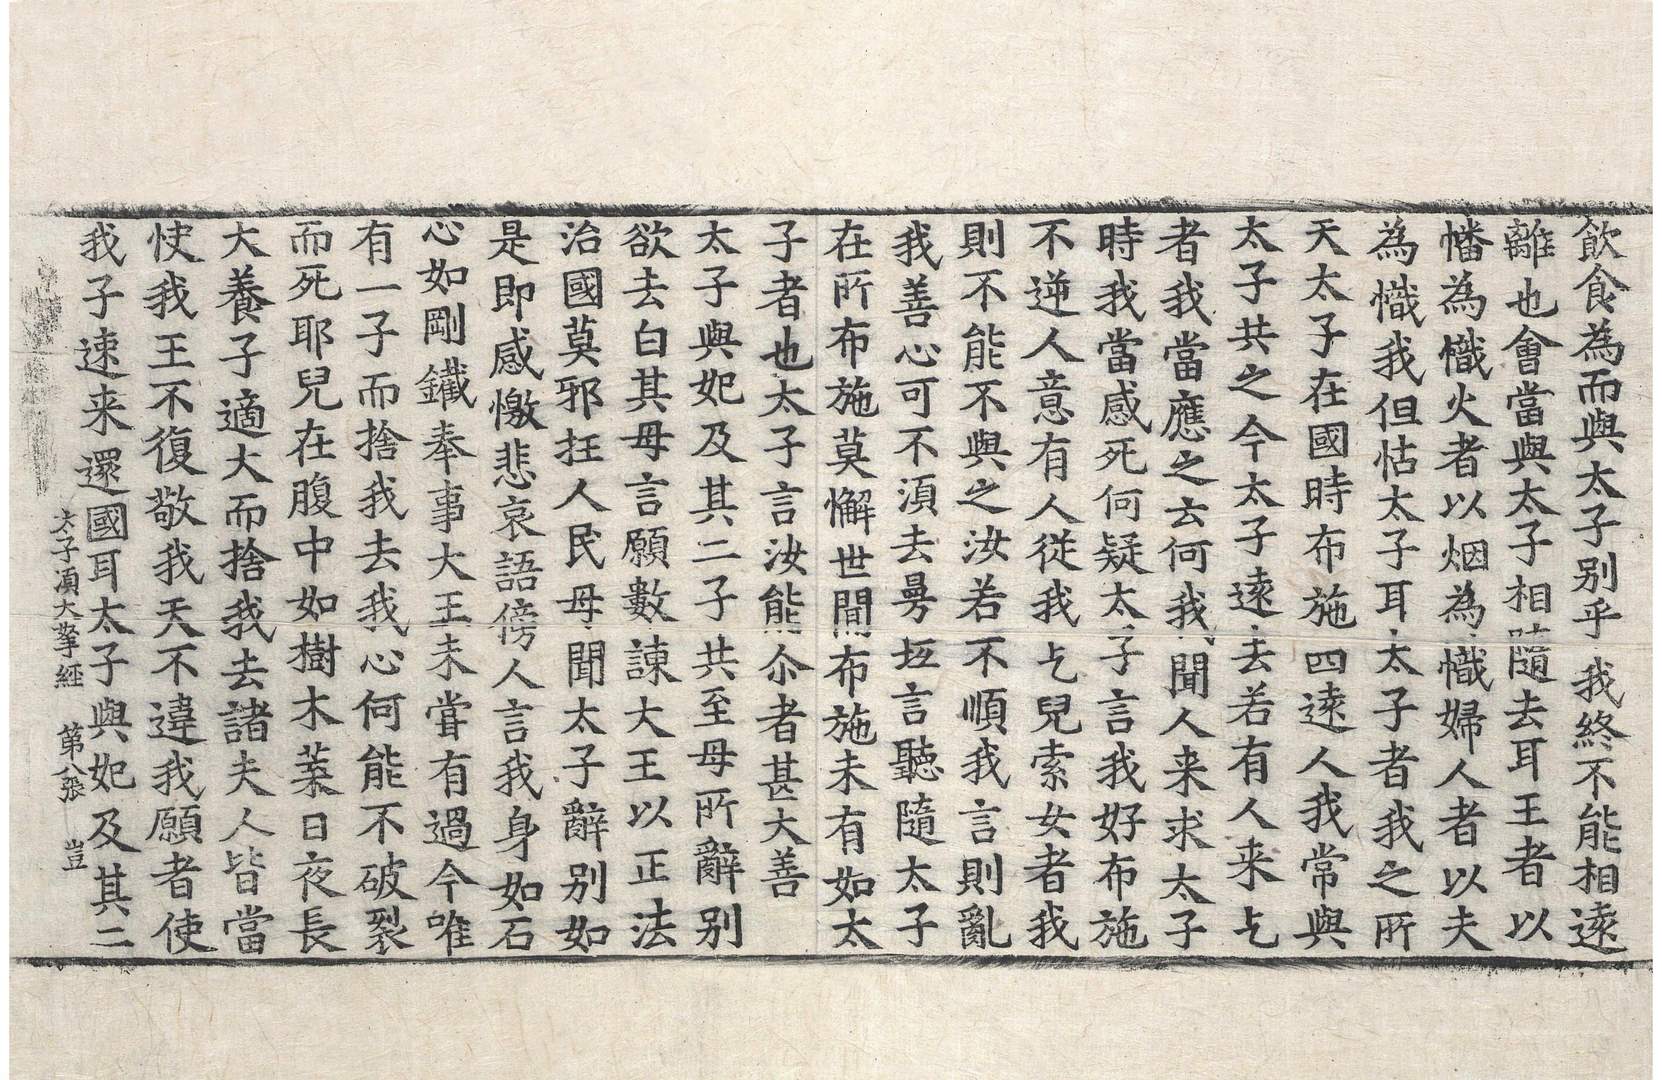 飲食為而與太子别乎我終不能相遠
離也會當與太子相隨去耳王者以
幡為幟火者以烟為幟婦人者以夫
為幟我但怙太子耳太子者我之所
天太子在國時布施四遠人我常與
太子共之今太子遠去若有人来乞
者我當應之云何我聞人来求太子
時我當感死何疑太子言我好布施
不逆人意有人從我乞兒索女者我
則不能不與之汝若不順我言則亂
我善心可不湏去曼坻言聽隨太子
在所布施莫懈世間布施未有如太
子者也太子言汝能尒者甚大善
太子與妃及其二子共至母所辭别
欲去白其母言願數諫大王以正法
治國莫邪抂人民母聞太子辭别如
是即感憿悲哀語傍人言我身如石
心如剛鐵奉事大王未甞有過今唯
有一子而捨我去我心何能不破裂
而死耶兒在腹中如樹木葉日夜長
大養子適大而捨我去諸夫人皆當
快我王不復敬我天不違我願者使
我子速来還國耳太子與妃及其二
太子湏大拏經 第八張 豈